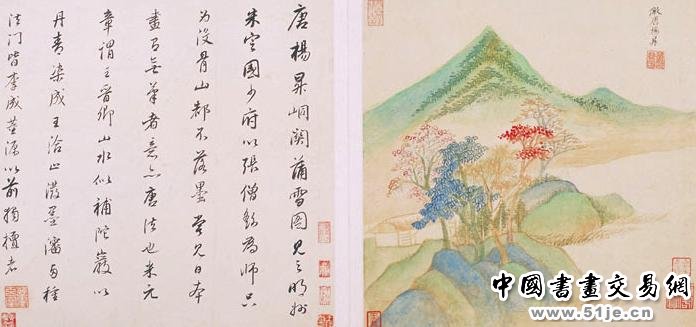 唐楊昇峒関蒲雪圖見之明州
朱定國少府以張僧繇為師只
为沒骨山都不落墨嘗見日本
畫有無筆者意亦唐法也米元
章謂王晉卿山水似補陀巖以
丹青染成王洽止潑墨瀋與種
法门皆李成董源以前獨擅者
倣唐楊昇
中國書畫交易網
www.51je.cn